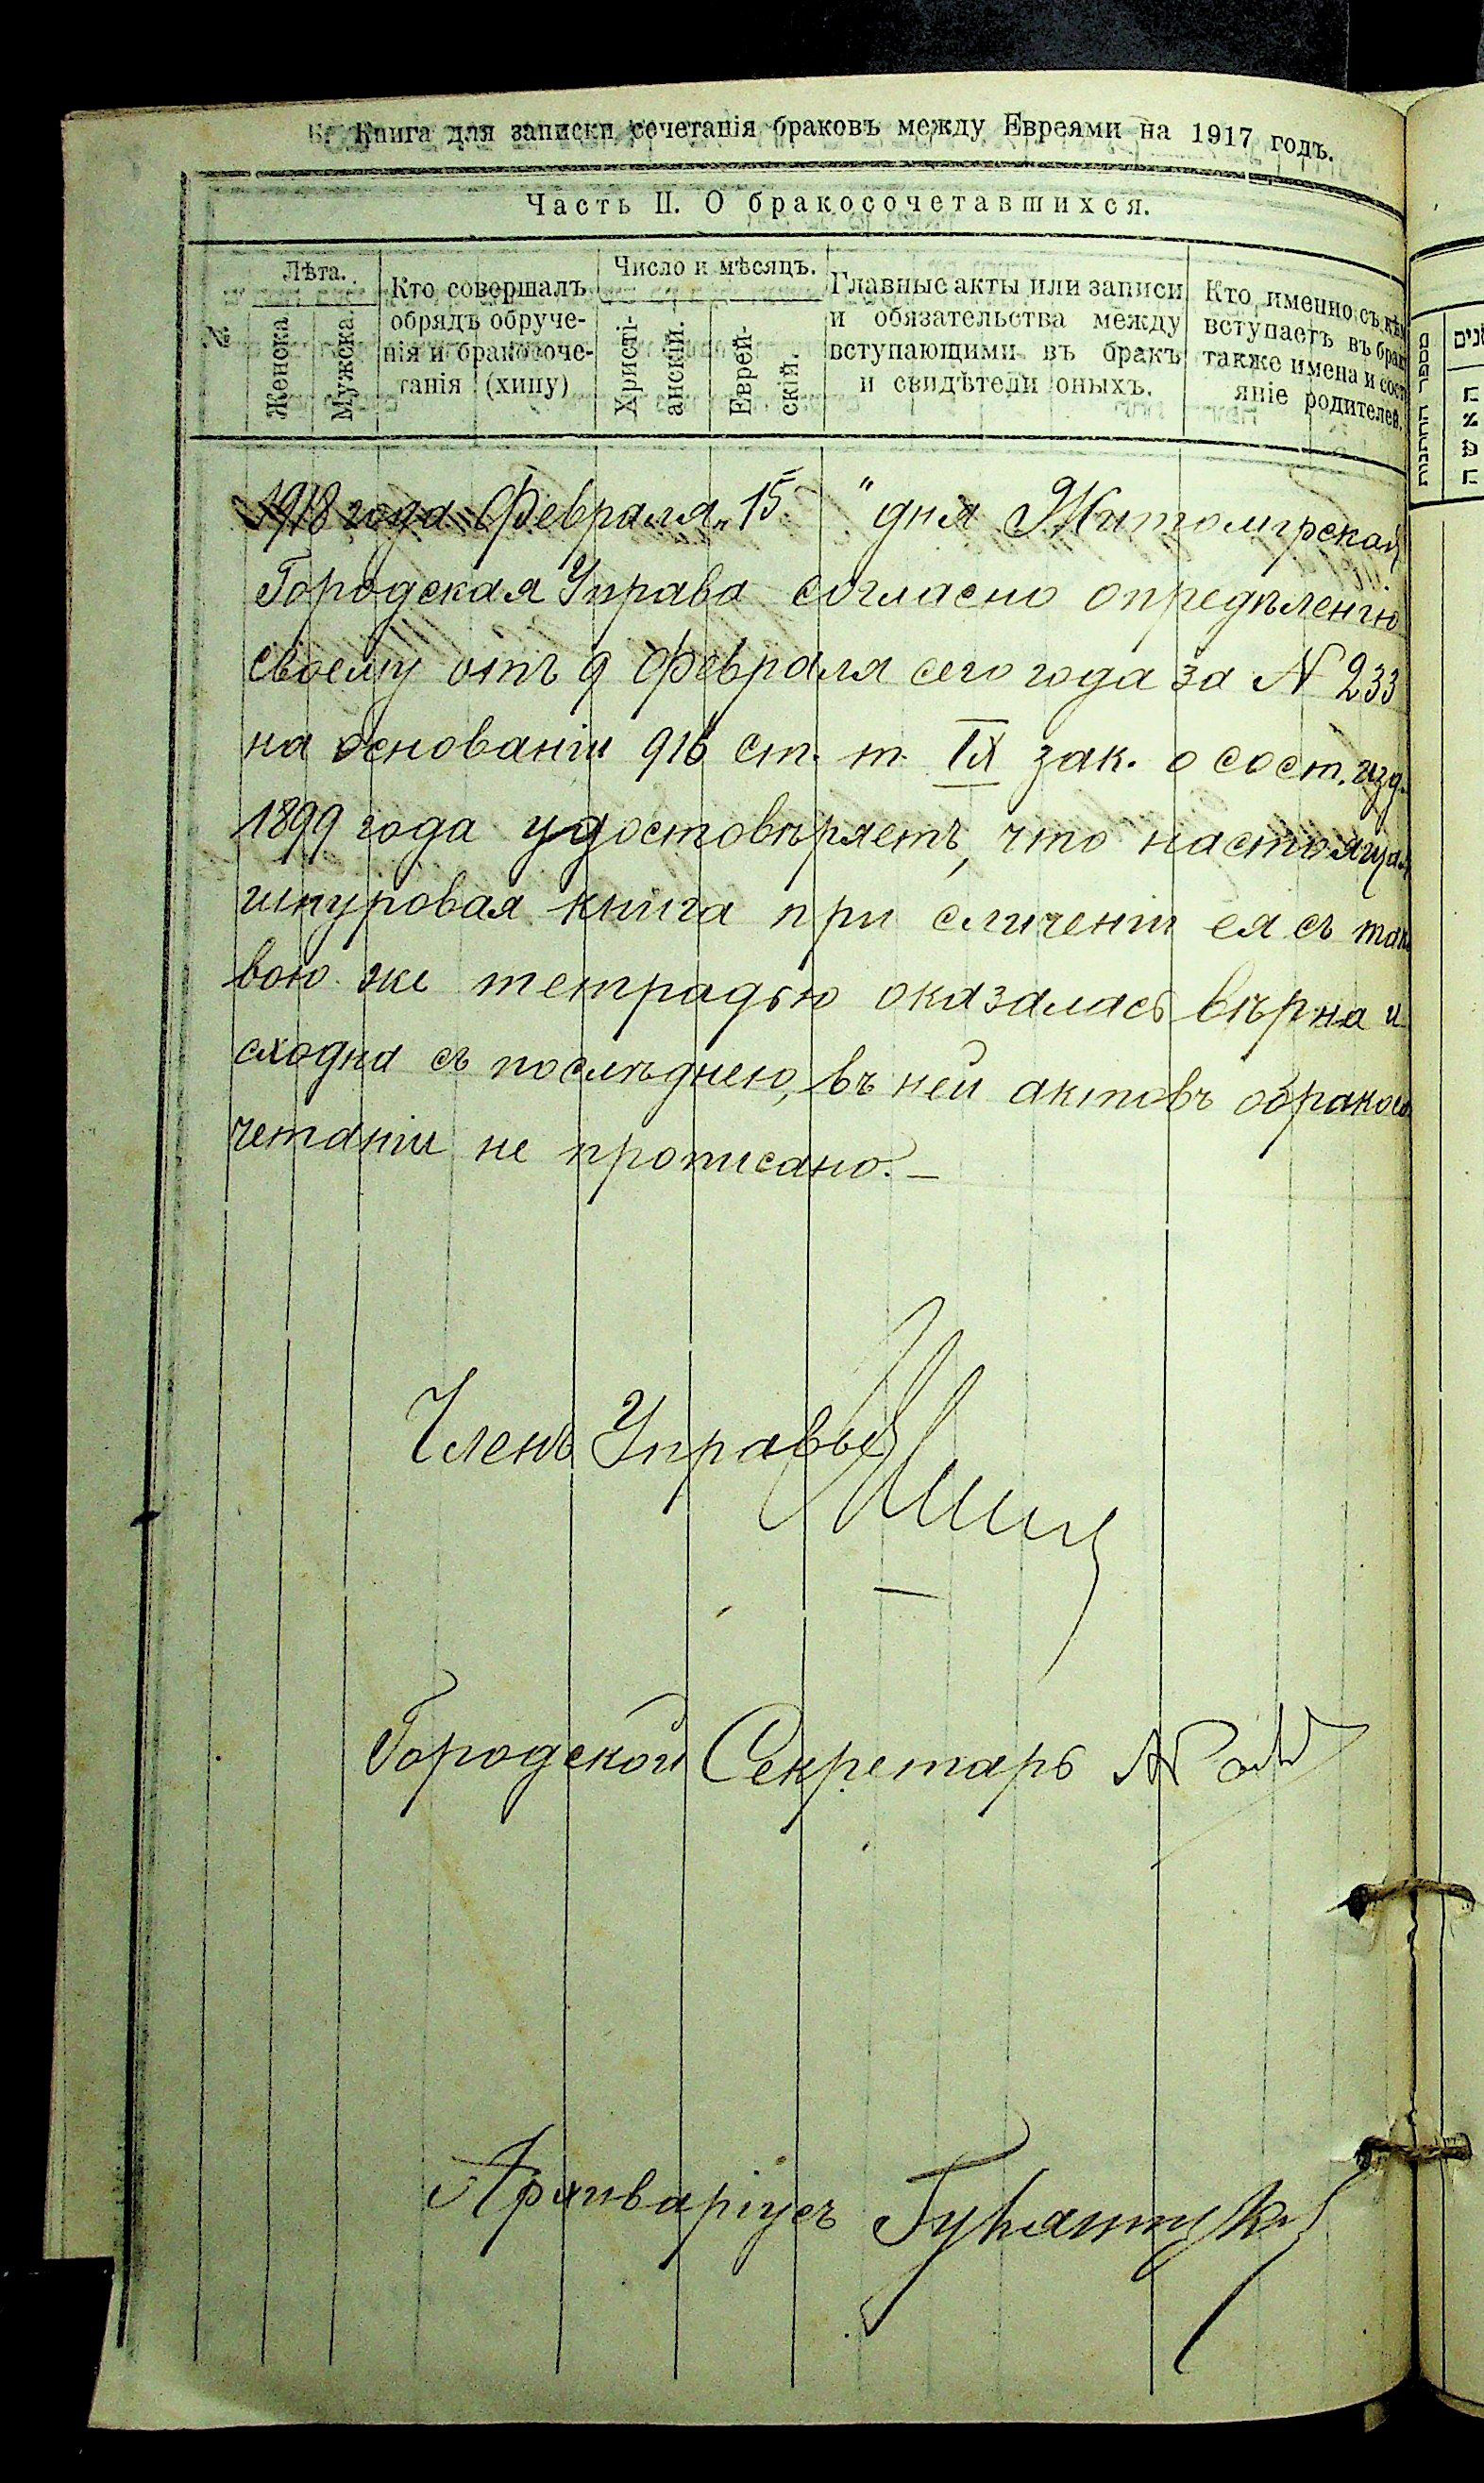 Книга для записки сочетанія браковъ между Евреями на 1917 годъ.
Часть II. О бракосочетавшихся.
№
Лѣта.
Женска
Мужска.
Кто совершалъ
обрядъ обруче-
нія и бракосоче-
танія (хипу)
Число и мѣсяцъ.
Христі-
анскій.
Еврей-
скій.
Главные акты или записи
и обязательства между
вступающими въ бракъ
и свидѣтели оныхъ.
Кто именно съ кѣм
вступаетъ въ брак
также имена и сост
яніе родителей.
1918 года Февраля „15" дня Житомирская
Городская Управа согласно опредѣленію
своему отъ 9 Февраля сего года за N 233
на основаніи 916 ст. т. IX зак. о сост. изд.
1899 года удостовѣряетъ, что настоящая
шнуровая книга при сличеніи ея съ тако
вою же тетрадью оказалась вѣрна и
сходна съ послѣднею, въ ней актовъ о бракосо
четаніи не прописано.–
Членъ Управы
Городской Секретарь
Архиваріусъ
מספר החתנות
האשה